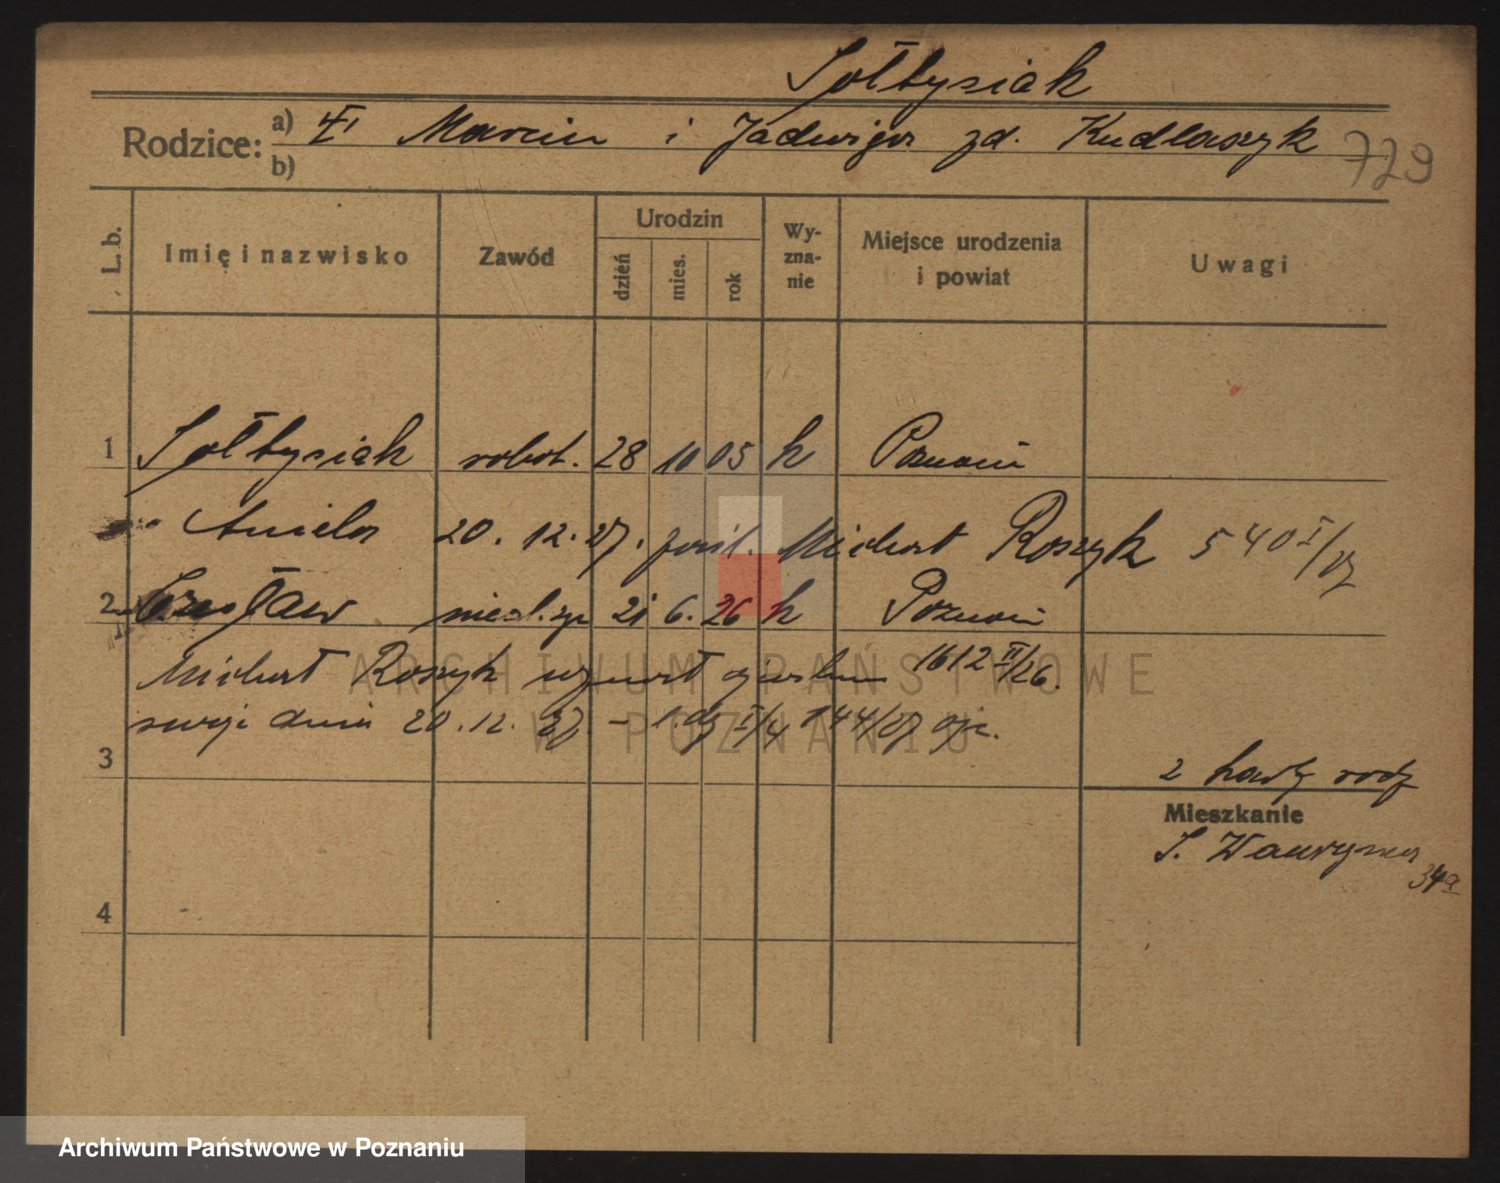 Sołtysiak
Rodzice: a) Marcin i Jadwiga zd. Kudlaszyk
b)
729
L. b. Imię i nazwisko Zawód Urodzin dzień mies. rok Wy-zna-nie Miejsce urodzenia i powiat Uwagi
1 Sołtysiak robot. 28 10 05 k Poznań
Aniela 20. 12. 27. Michał Roszyk 540 I/27
2 Czesław 21 6. 26 k Poznań
Michał Roszyk uznał 1612 II/26.
dnia 20.12. 27. – 144/27
3
2 karty rodz
Mieszkanie
S. Wawrzyńca
34a
4
ARCHIWUM PAŃSTWOWE
W POZNANIU
Archiwum Państwowe w Poznaniu